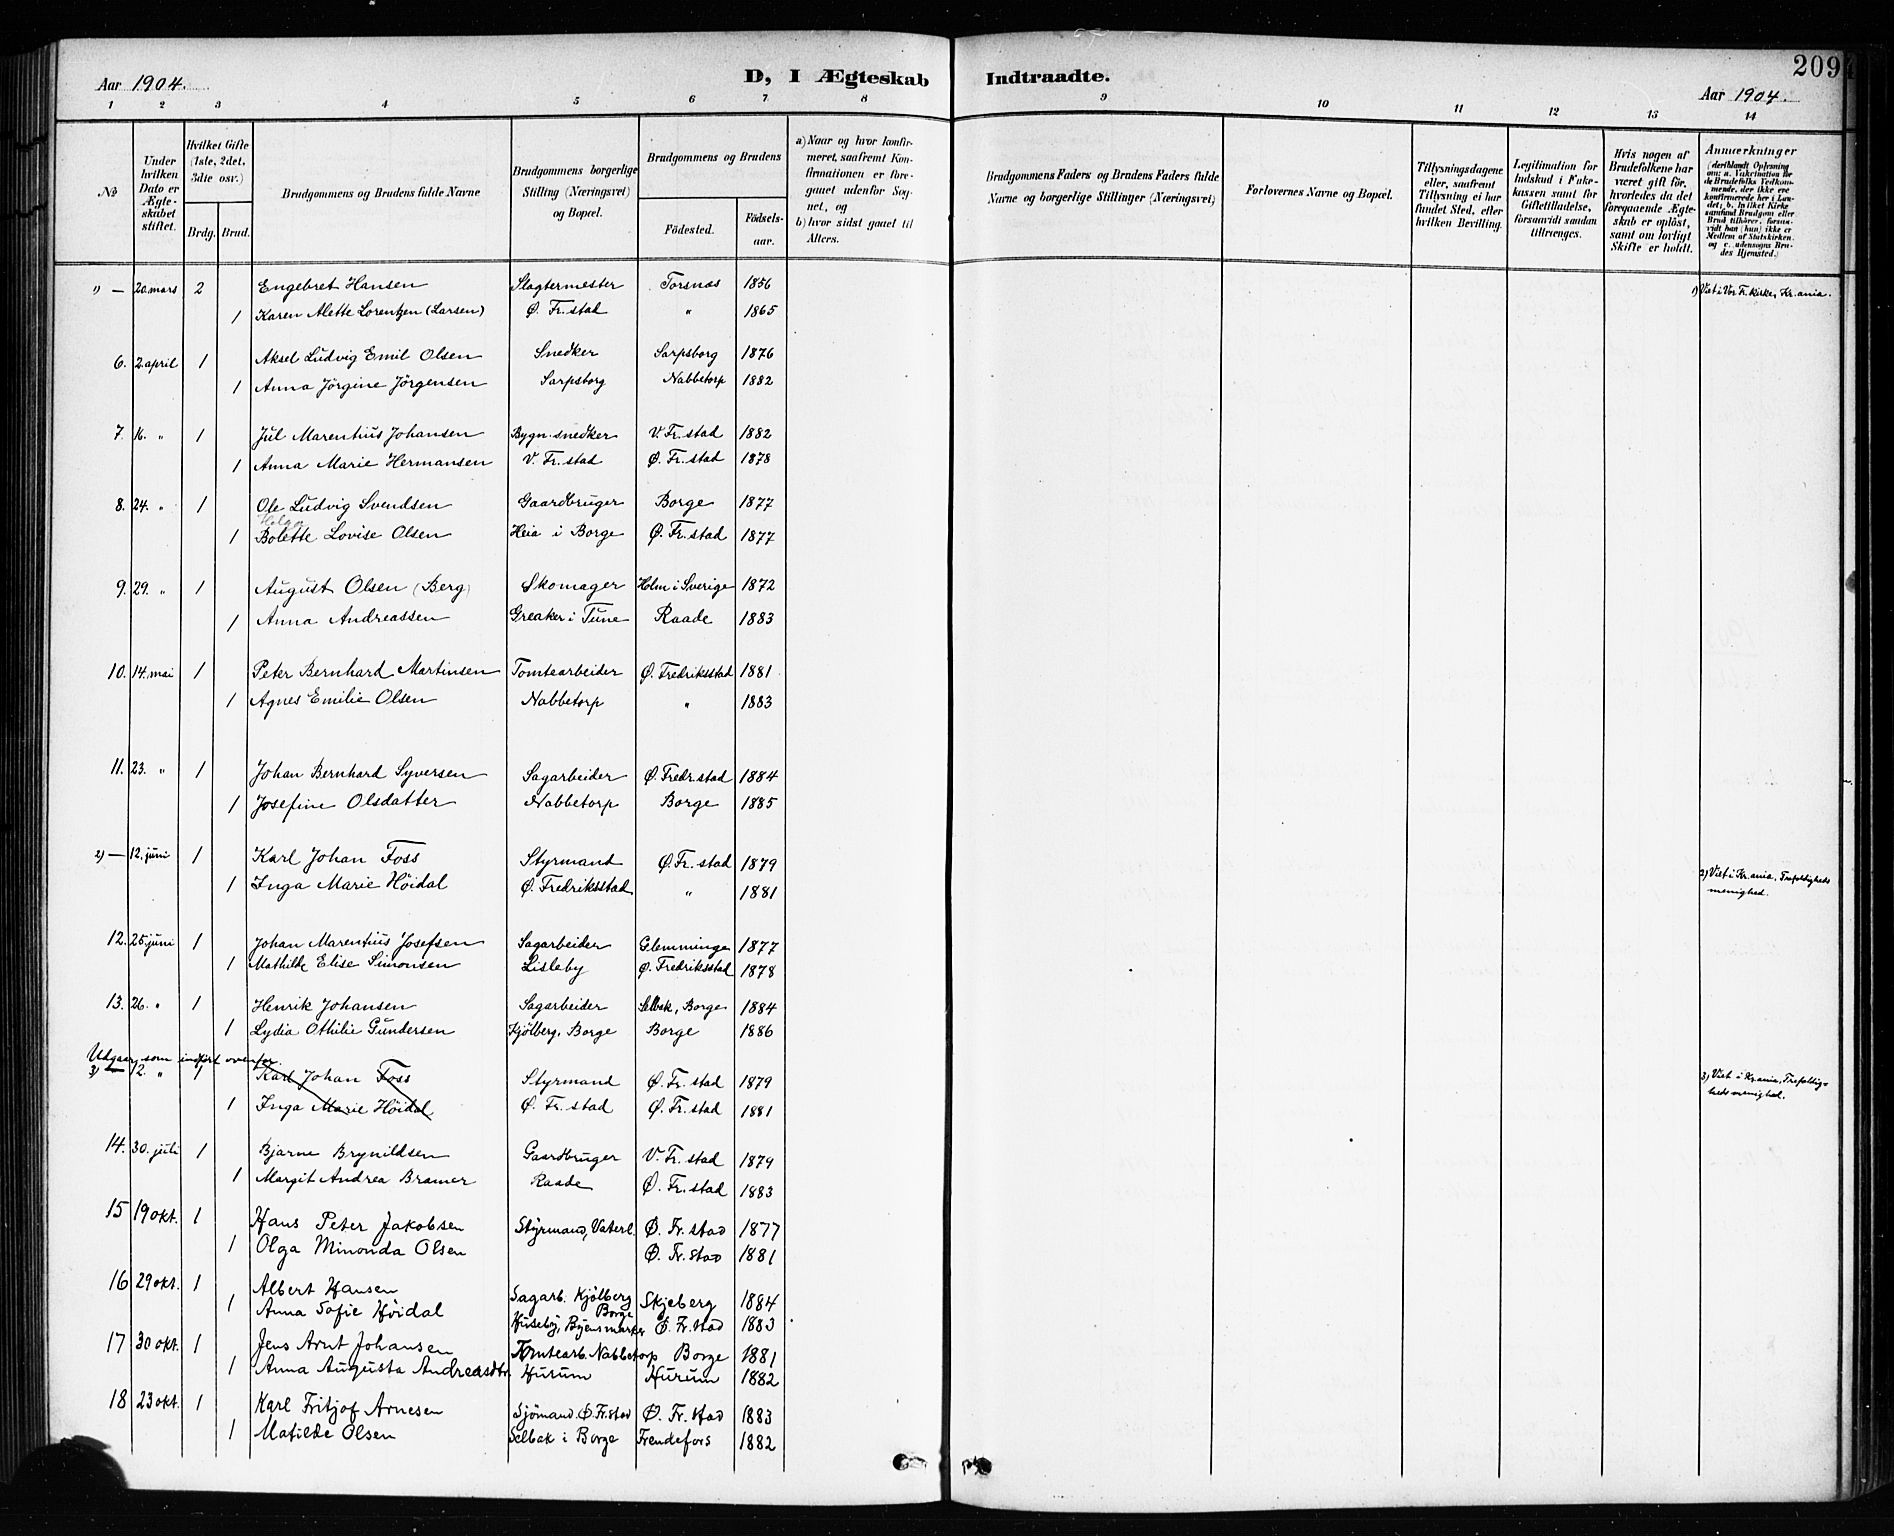 Aar 1904.
D, I Ægteskab Indtraadte.
209
Aar 1904.
1 2 3 4 5 6 7 8 9 10 11 12 13 14
No
Under hvilken Dato er Ægteskabet stiftet.
Hvilket Gifte (1ste, 2det, 3die osv.)
Brdg. Brud.
Brudgommens og Brudens fulde Navne
Brudgommens borgerlige Stilling (Næringsvei) og Bopæl.
Brudgommens og Brudens
Födested. Födsels-aar.
a) Naar og hvor konfirmeret, saafremt Konfirmationen er foregaaet udenfor Sognet, og
b) hvor sidst gaaet til Alters.
Brudgommens Faders og Brudens Faders fulde Navne og borgerlige Stillinger (Næringsvei)
Forlovernes Navne og Bopæl.
Tillysningsdagene eller, saafremt Tillysning ei har fundet Sted, efter hvilken Bevilling.
Legitimation for Indskud i Enkekassen samt for Giftetilladelse, forsaavidt saadan tiltrænges.
Hvis nogen af Brudefolkene har været gift för, hvorledes da det foregaaende Ægteskab er oplöst, samt om lovligt Skifte er holdt.
Anmærkninger
(deriblandt Oplysning om: a. Vakcination for de Brudefolks Vedkommende, der ikke ere konfirmerede her i Landet; b. hvilket Kirkesamfund Brudgom eller Brud tilhører, forsaavidt han (hun) ikke er Medlem af Statskirken. og c. udensogns Brudes Hjemsted.)
1) — 20.mars 2 Engebret Hansen Slagtermester Torsnæs 1856 1) Viet i Vor Fr. kirke, Kr.ania.
1 Karen Alette Lorentzen (Larsen) Ø. Fr.stad " 1865
6. 2.april 1 Aksel Ludvig Emil Olsen Snedker Sarpsborg 1876
1 Anna Jörgine Jörgensen Sarpsborg Nabbetorp 1882
7. 16. " 1 Jul Marentius Johansen Bygn.snedker V. Fr.stad 1882
1 Anna Marie Hermansen V. Fr.stad Ø. Fr.stad 1878
8. 24. " 1 Ole Ludvig Svendsen Gaardbruger Borge 1877
Helga
1 Bolette Lovise Olsen Heia i Borge Ø. Fr.stad 1877
9. 29. " 1 August Olsen (Berg) Skomager Holm i Sverige 1872
1 Anna Andreassen Greaker i Tune Raade 1883
10. 14.mai 1 Peter Bernhard Martinsen Tomtearbeider Ø. Fredriksstad 1881
1 Agnes Emilie Olsen Nabbetorp " 1883
11. 23. " 1 Johan Bernhard Syversen Sagarbeider Ø. Fredr.stad 1884
1 Josefine Olsdatter Nabbetorp Borge 1885
2) — 12.juni 1 Karl Johan Foss Styrmand Ø. Fr.stad 1879
1 Inga Marie Höidal Ø. Fredriksstad " 1881 2) Viet i Kr.ania, Trefoldigheds
menighed.
12. 25.juni 1 Johan Marentius Josefsen Sagarbeider Glemminge 1877
1 Mathilde Elise Simonsen Lisleby Ø. Fredriksstad 1878
13. 26. " 1 Henrik Johansen Sagarbeider Selbak, Borge 1884
1 Lydia Othilie Gundersen Kjölberg, Borge Borge 1886
Udgaar som indført ovenfor.
3) — 12. " 1 Karl Johan Foss Styrmand Ø. Fr.stad 1879 3) Viet i Kr.ania, Trefoldig-
hedsmenighed.
1 Inga Marie Höidal Ø. Fr.stad Ø. Fr.stad 1881
14. 30.juli 1 Bjarne Brynildsen Gaardbruger V. Fr.stad 1879
1 Margit Andrea Bramer Raade Ø. Fr.stad 1883
15 19 okt. 1 Hans Peter Jakobsen Styrmand, Vaterl. Ø. Fr.stad 1877
1 Olga Minonda Olsen Ø. Fr.stad 1881
16 29 okt. 1 Albert Hansen Sagarb. Kjölberg Borge Skjeberg 1884
1 Anna Sofie Höidal Huseby, Byens marker Ø. Fr.stad 1883
17 30 okt. 1 Jens Arnt Johansen Tomtearb. Nabbetorp Borge 1881
1 Anna Augusta Andreasdtr. Hurum Hurum 1882
18 23 okt. 1 Karl Fritjof Arnesen Sjömand. Ø.Fr.stad Ø. Fr.stad 1883
1 Matilde Olsen Selbak i Borge Frendefors 1882